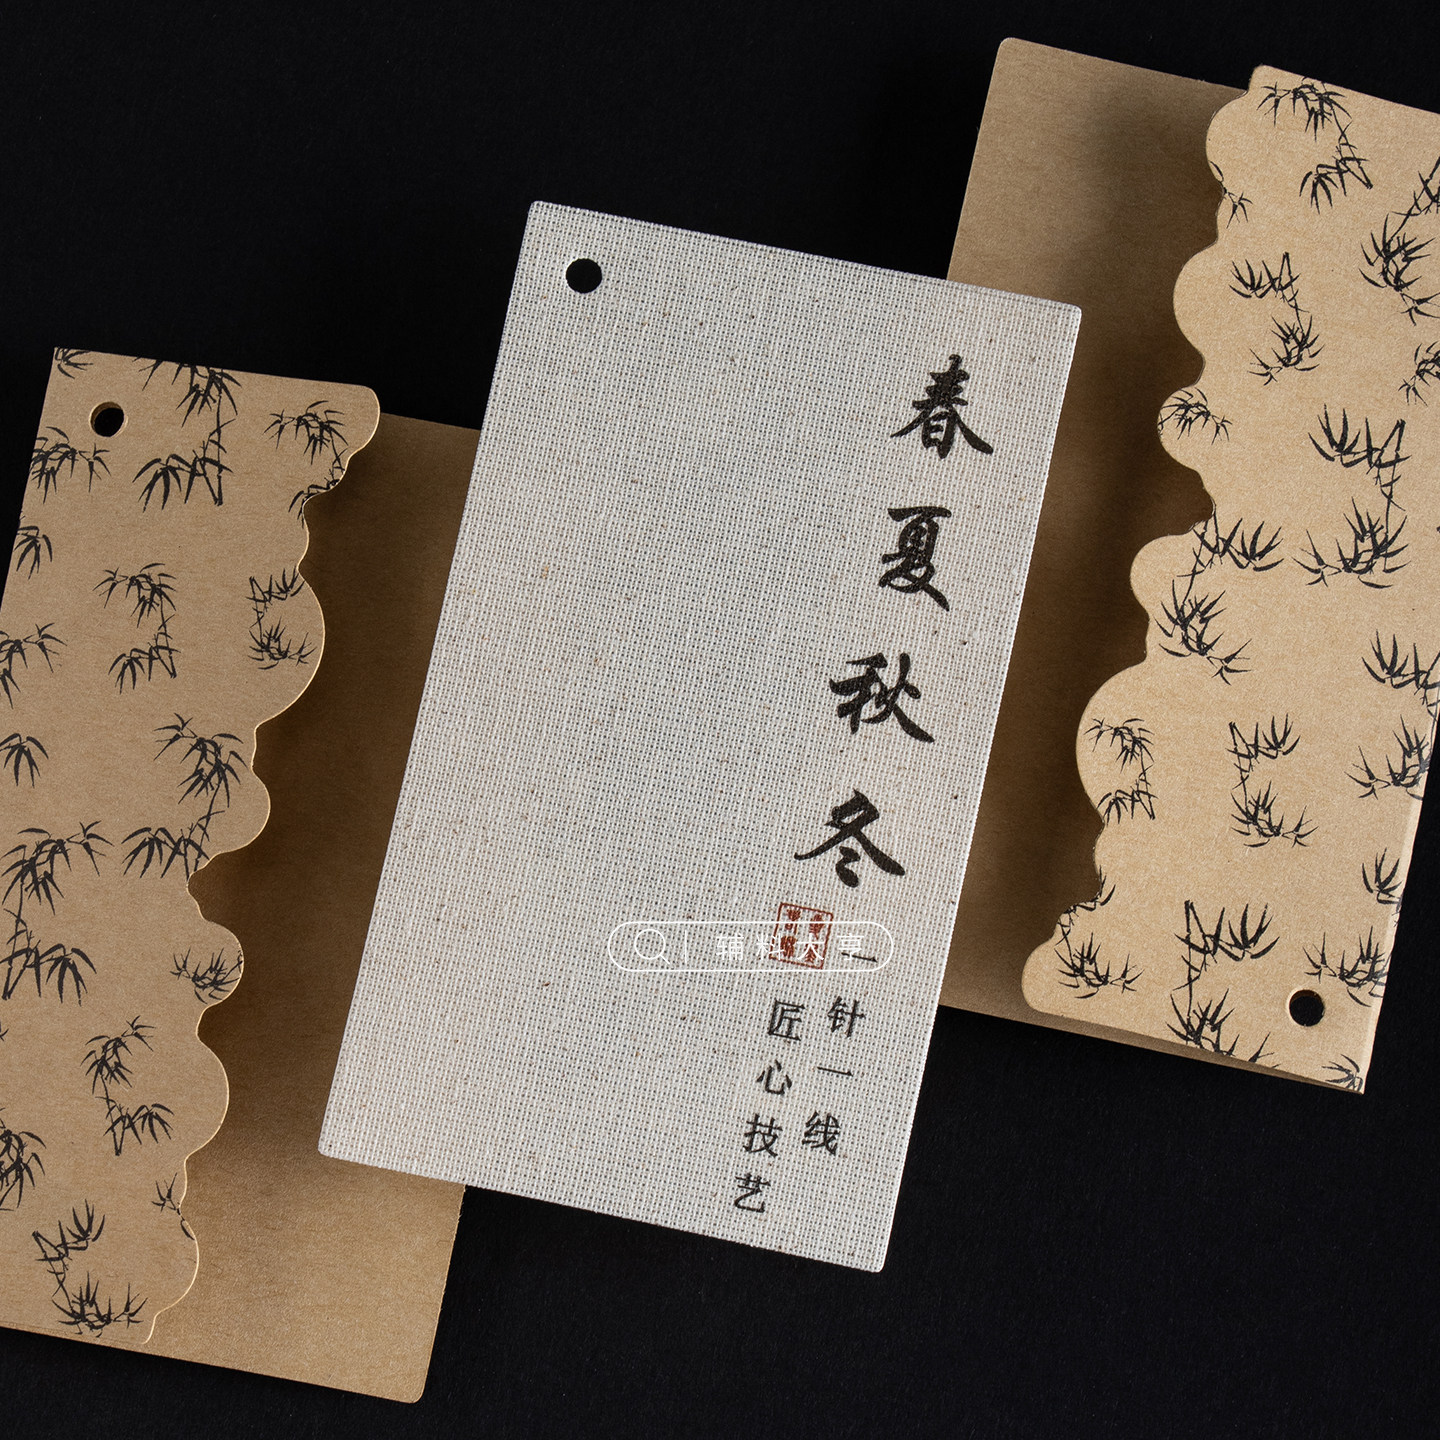 春夏秋冬
一针一线
匠心技艺
辅料大亨